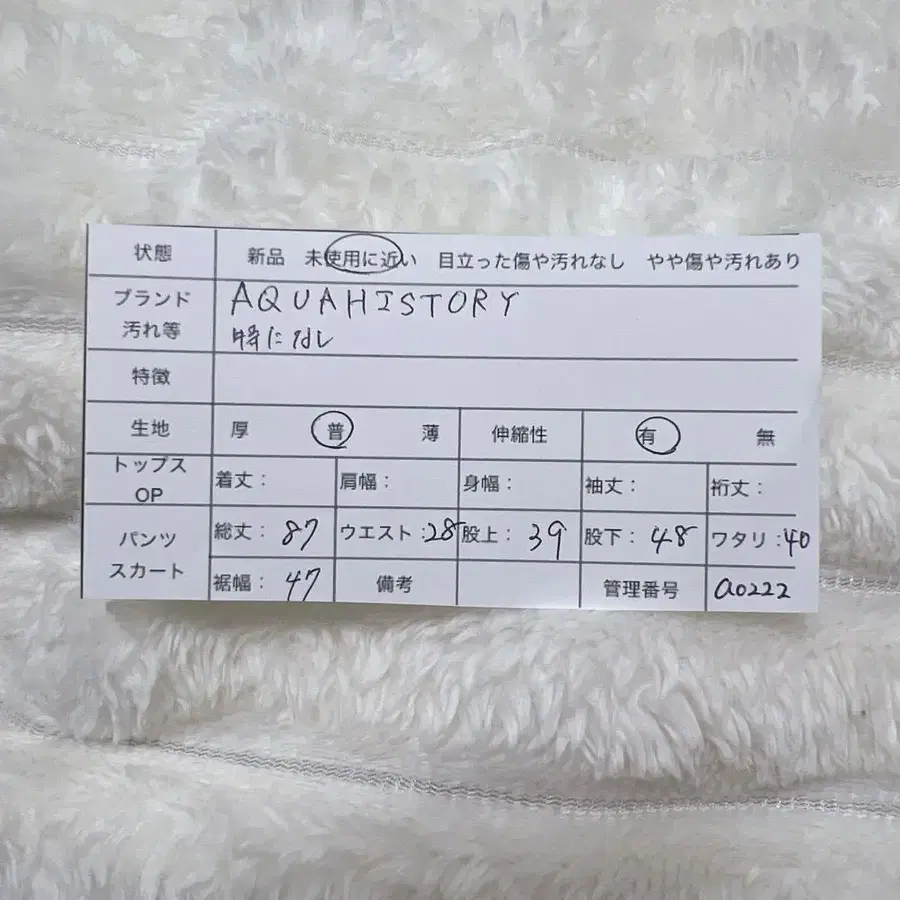 状態 新品 未使用に近い 目立った傷や汚れなし やや傷や汚れあり
ブランド AQUAHISTORY
汚れ等 特になし
特徴
生地 厚 普 薄 伸縮性 有 無
トップス OP 着丈: 肩幅: 身幅: 袖丈: 裄丈:
パンツ スカート 総丈: 87 ウエスト:28 股上: 39 股下: 48 ワタリ:40
裾幅: 47 備考 管理番号 a0222